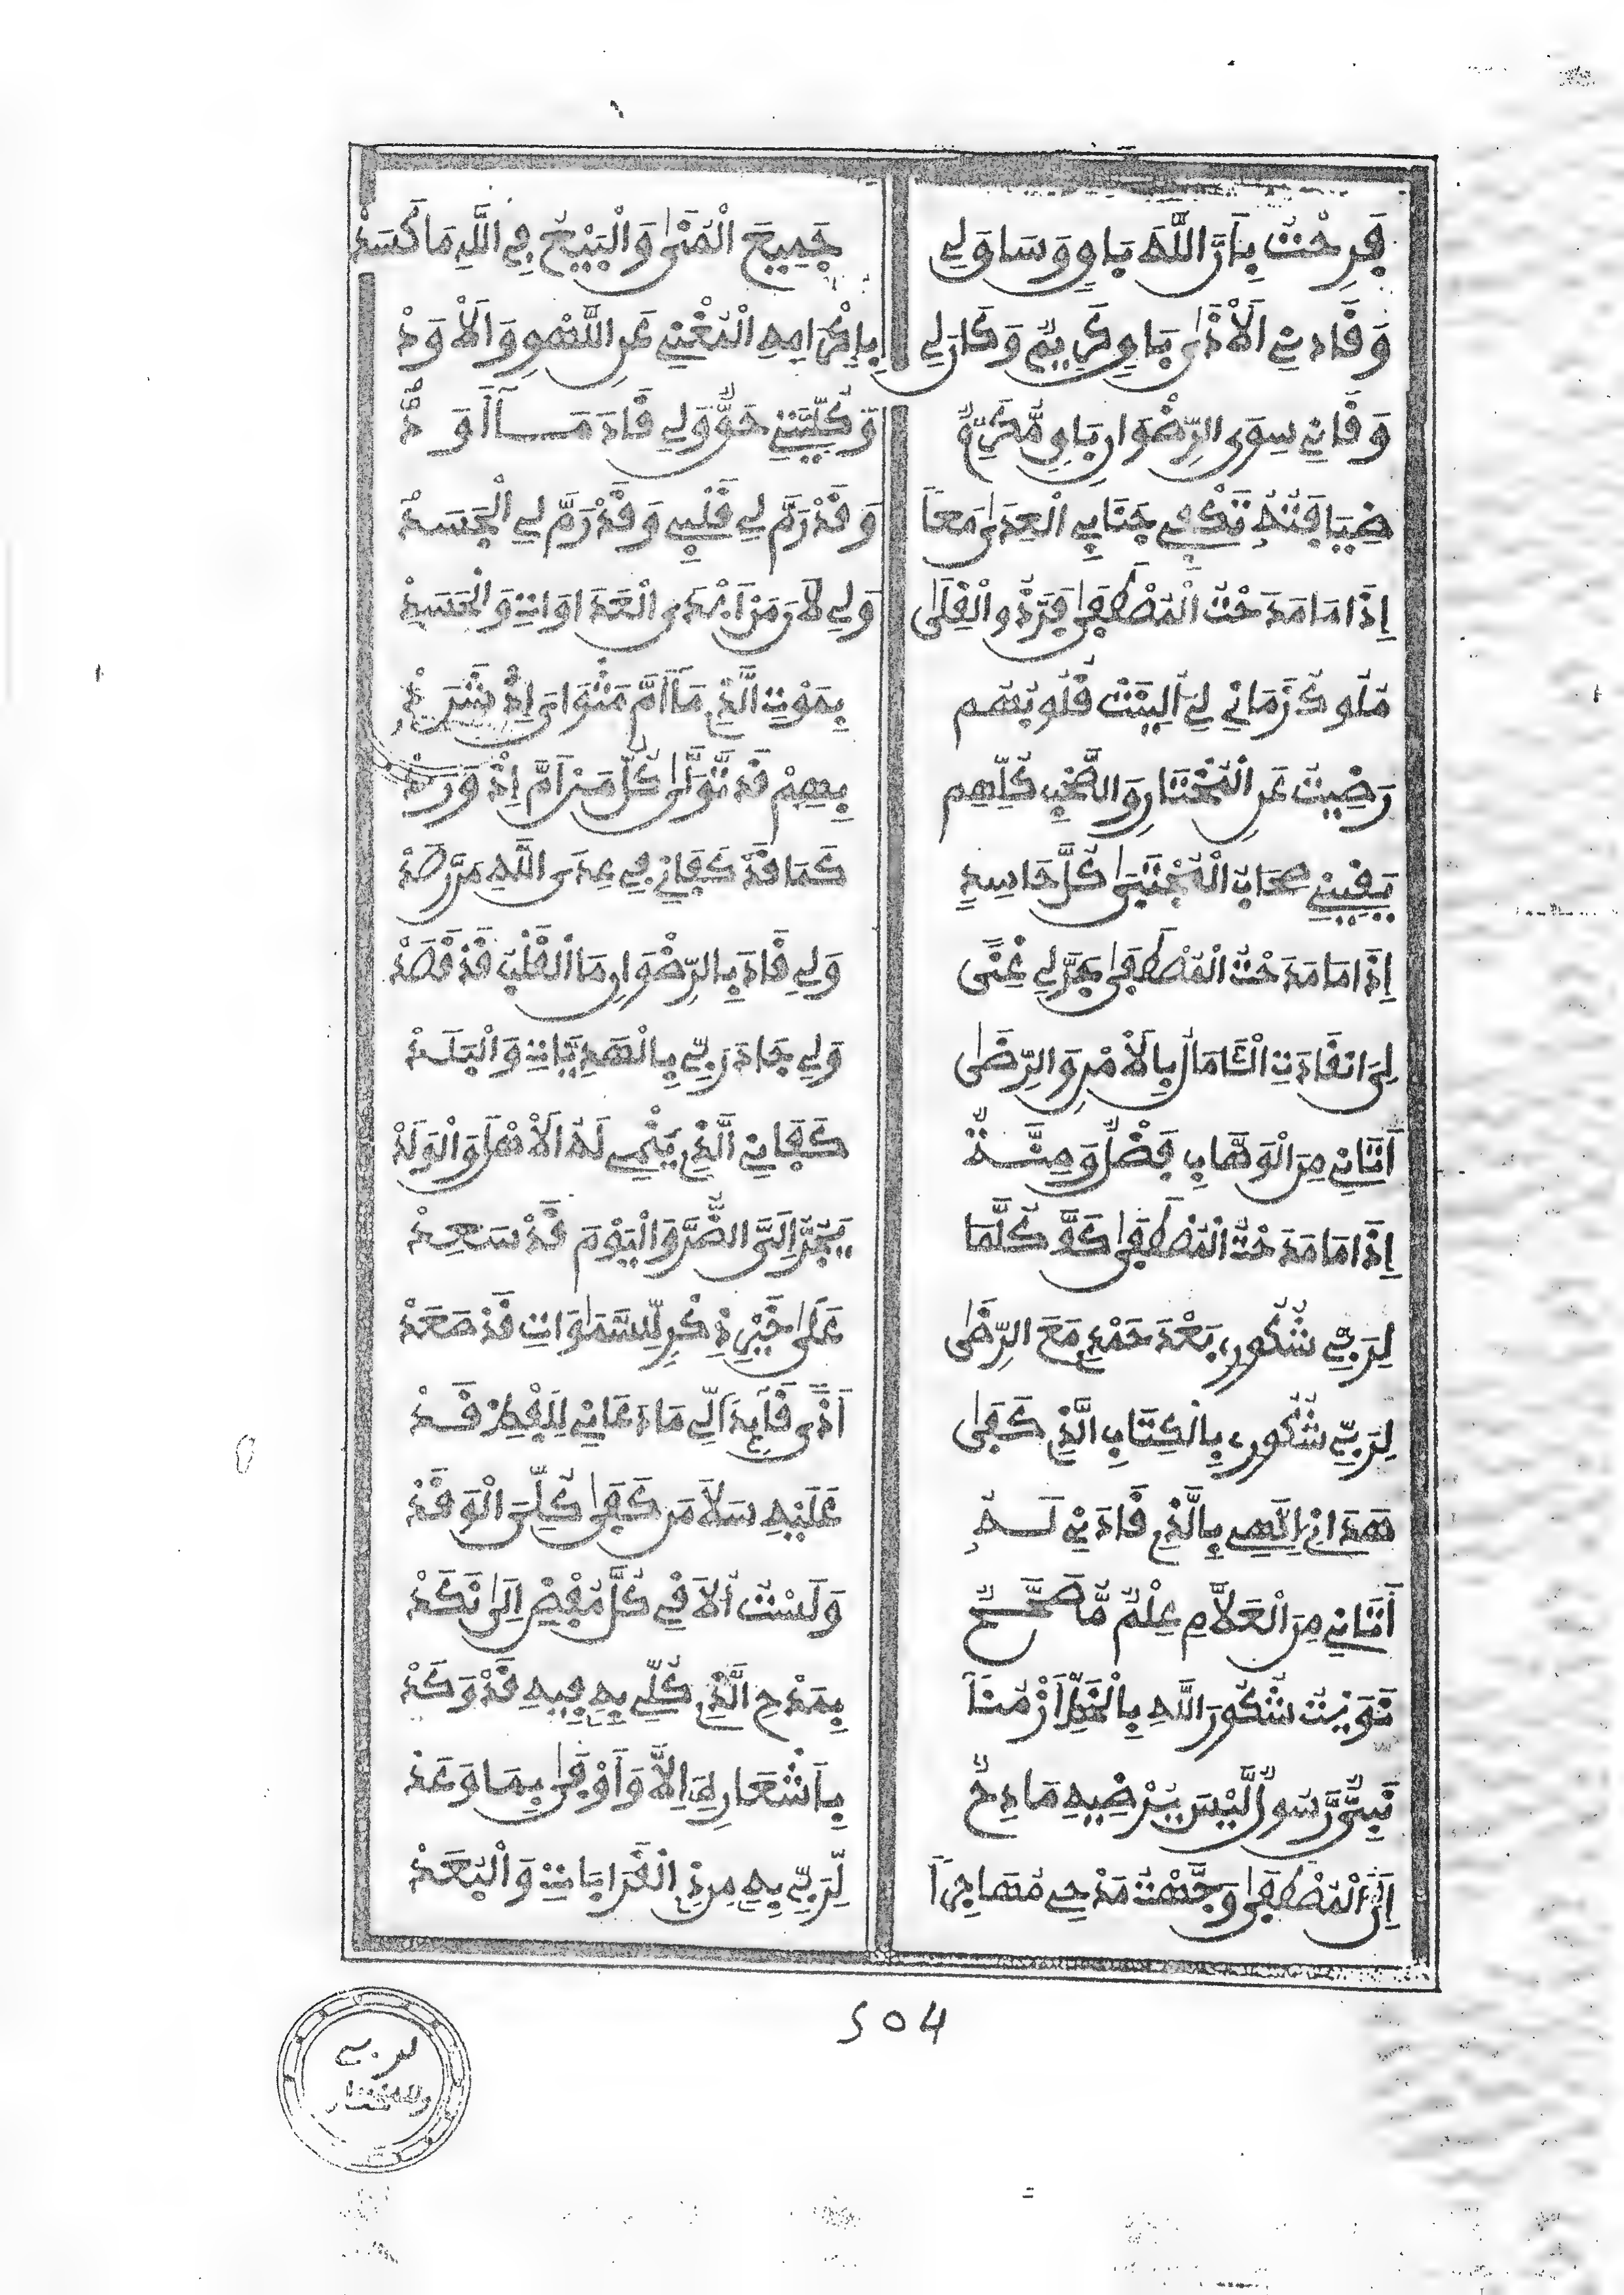 فَرِحْتُ بِأَنَّ اللَّهَ بَاوٍ وَسَاوَ لِي جَمِيعَ الْمُنَى وَالْبَيْعُ فِي اللَّهِ مَا كَسَدْ
وَقَادَنِي الْأَذَى بَاوٍ كَرِيمٌ وَكَانَ لِي بِإِكْرَامِهِ الْمُغْنِي عَنِ اللَّهْوِ وَالْأَوَدْ
سِوَى الرِّضْوَانِ بَاوٍ مُكَرِّمٌ وَكُلِّيَّتِي وَلِي قَادَ
ضِيَافَتُهُ تَكْفِي جَنَابِي الْعِدَى مَعًا وَقَدْ رَمَّ لِي قَلْبِي وَقَدْ رَمَّ لِي الْجَسَدْ
إِذَا مَا مَدَحْتُ الْمُصْطَفَى فَرَّ ذُو الْقِلَى وَلِي لَانَ مَنْ أَبْدَى الْعَدَاوَاتِ وَالْحَسَدْ
مُلُوكُ زَمَانِي لِي أُلِينَتْ قُلُوبُهُمْ بِمَوْتِ الَّذِي مَا أَمَّ مَثْوَايَ إِذْ شَرَدْ
رَضِيتُ عَنِ الْمُخْتَارِ وَالصَّحْبِ كُلِّهِمْ بِهِمْ قَدْ تَوَلَّى كُلُّ مَنْ أَمَّ إِذْ وَرَدْ
يَقِينِي صِحَابُ الْمُجْتَبَى كُلَّ حَاسِدٍ كَمَا قَدْ كَفَانِي فِي عِدَى اللَّهِ مَنْ رَصَدْ
إِذَا مَا مَدَحْتُ الْمُصْطَفَى جَرَّ لِي غِنًى وَلِي قَادَ بِالرِّضْوَانِ مَا الْقَلْبُ قَدْ قَصَدْ
لِيَ انْقَادَتِ الْآمَالُ بِالْأَمْنِ وَالرِّضَى وَلِي جَادَ رَبِّي بِالْهَدِيَّاتِ وَالْبَلَدْ
أَتَانِي مِنَ الْوَهَّابِ فَضْلٌ وَمِنَّةٌ كَفَانِي الَّذِي يَنْمِي لَهُ الْأَهْلَ وَالْوَلَدْ
إِذَا مَا مَدَحْتُ الْمُصْطَفَى كَفَّ كُلَّمَا يَجُرُّ إِلَيَّ الضُّرَّ وَالْيَوْمَ قَدْ سَعِدْ
لِرَبِّي شُكُورِي بَعْدَ حَمْدِي مَعَ الرِّضَى عَلَى خَيْرِ ذِكْرٍ لِلسَّمَاوَاتِ قَدْ صَعَدْ
لِرَبِّي شُكُورِي بِالْكِتَابِ الَّذِي كَفَى أَذًى قَائِدًا لِي مَا دَعَانِي لِلْفِكْرِ قَدْ
هَدَانِي إِلَهِي بِالَّذِي قَادَنِي لَهُ عَلَيْهِ سَلَامَنْ كَفَى كُلِّيَ الْوَقَدْ
أَتَانِي مِنَ الْعَلَّامِ عِلْمٌ مُصَحَّحٌ وَلَسْتُ أُلَاقِي كُلَّ مُفْضٍ إِلَى نَكَدْ
نَوَيْتُ شُكُورَ اللَّهِ بِالْخَطِّ أَزْمُنًا بِمَدْحِ الَّذِي كُلِّي بِهِ فِيهِ قَدْ وَكَدْ
نَبِيٌّ رَسُولٌ لَيْسَ يُرْضِيهِ مَادِحٌ بِأَشْعَارِهِ إِلَّا وَأَوْفَى بِمَا وَعَدْ
إِلَى الْمُصْطَفَى وَجَّهْتُ مَدْحِي مُهَاجِرًا لِرَبِّي بِهِ مِنْ ذِي الْقَرَابَاتِ وَالْبُعَدْ
504